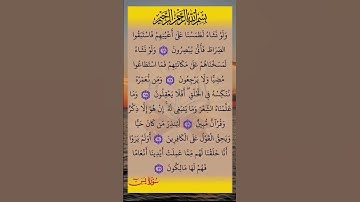 بسم الله الرحمن الرحيم
وَلَوْ نَشَاءُ لَطَمَسْنَا عَلَىٰ أَعْيُنِهِمْ فَاسْتَبَقُوا
الصِّرَاطَ فَأَنَّىٰ يُبْصِرُونَ ﴿٦٦﴾ وَلَوْ نَشَاءُ
لَمَسَخْنَاهُمْ عَلَىٰ مَكَانَتِهِمْ فَمَا اسْتَطَاعُوا
مُضِيًّا وَلَا يَرْجِعُونَ ﴿٦٧﴾ وَمَن نُّعَمِّرْهُ
نُنَكِّسْهُ فِي الْخَلْقِ ۖ أَفَلَا يَعْقِلُونَ ﴿٦٨﴾ وَمَا
عَلَّمْنَاهُ الشِّعْرَ وَمَا يَنبَغِي لَهُ ۚ إِنْ هُوَ إِلَّا ذِكْرٌ
وَقُرْآنٌ مُّبِينٌ ﴿٦٩﴾ لِّيُنذِرَ مَن كَانَ حَيًّا
وَيَحِقَّ الْقَوْلُ عَلَى الْكَافِرِينَ ﴿٧٠﴾ أَوَلَمْ يَرَوْا
أَنَّا خَلَقْنَا لَهُم مِّمَّا عَمِلَتْ أَيْدِينَا أَنْعَامًا
فَهُمْ لَهَا مَالِكُونَ ﴿٧١﴾
سورة يس